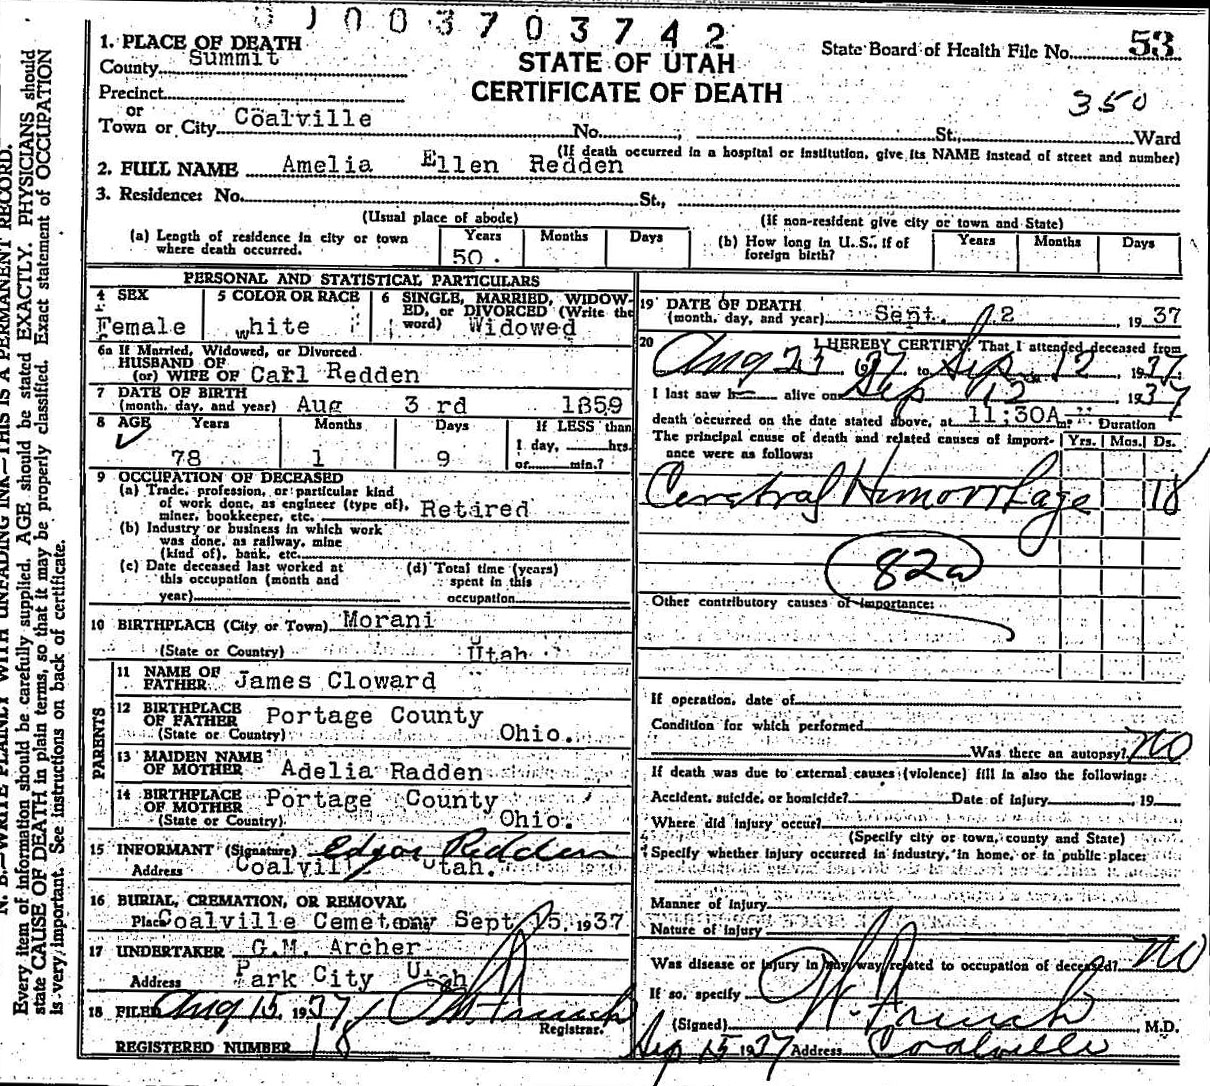 0100370 3742
1. PLACE OF DEATH
County Summit
STATE OF UTAH
CERTIFICATE OF DEATH
State Board of Health File No. 53
Precinct
350
or
Town or City Coalville No. , St., Ward
(If death occurred in a hospital or institution, give its NAME instead of street and number)
2. FULL NAME Amelia Ellen Redden
3. Residence: No. St.,
(Usual place of abode) (If non-resident give city or town and State)
(a) Length of residence in city or town where death occurred. Years 50. Months Days
(b) How long in U.S., if of foreign birth? Years Months Days
PERSONAL AND STATISTICAL PARTICULARS
4 SEX
Female
5 COLOR OR RACE
white
6 SINGLE, MARRIED, WIDOW-
ED, or DIVORCED (Write the
word) Widowed
6a If Married, Widowed, or Divorced
HUSBAND OF
(or) WIFE OF Carl Redden
7 DATE OF BIRTH
(month, day, and year) Aug 3 rd 1859
8 AGE Years Months Days If LESS than
1 day, hrs.
78 1 9 or min.?
9 OCCUPATION OF DECEASED
(a) Trade, profession, or particular kind
of work done, as engineer (type of),
miner, bookkeeper, etc. Retired
(b) Industry or business in which work
was done, as railway, mine
(kind of), bank, etc.
(c) Date deceased last worked at
this occupation (month and
year)
(d) Total time (years)
spent in this
occupation
10 BIRTHPLACE (City or Town) Morani
(State or Country) Utah
PARENTS
11 NAME OF
FATHER James Cloward
12 BIRTHPLACE
OF FATHER Portage County
(State or Country) Ohio.
13 MAIDEN NAME
OF MOTHER Adelia Radden
14 BIRTHPLACE
OF MOTHER Portage County
(State or Country) Ohio.
15 INFORMANT (Signature) Edgar Redden
Address Coalville Utah.
16 BURIAL, CREMATION, OR REMOVAL
Place Coalville Cemetery Date Sept 15, 1937
17 UNDERTAKER G.M. Archer
Address Park City Utah
18 FILED Aug 15, 1937
Registrar.
REGISTERED NUMBER 18
19 DATE OF DEATH
(month, day, and year) Sept. 12 1937
20 I HEREBY CERTIFY, That I attended deceased from
Aug 25 1937 to Sep 12, 1937.
I last saw h alive on Sep 12 1937
death occurred on the date stated above, at 11:30A m. Duration
The principal cause of death and related causes of import-
ance were as follows: Yrs. Mos. Ds.
Cerebral Hemorrhage 18
82a
Other contributory causes of importance:
If operation, date of
Condition for which performed
Was there an autopsy? No
If death was due to external causes (violence) fill in also the following:
Accident, suicide, or homicide? Date of injury , 19
Where did injury occur?
(Specify city or town, county and State)
Specify whether injury occurred in industry, in home, or in public place:
Manner of injury
Nature of injury
Was disease or injury in any way related to occupation of deceased? No
If so, specify
(Signed) , M.D.
Sep 15 1937 Address Coalville
N. B.—WRITE PLAINLY WITH UNFADING INK—THIS IS A PERMANENT RECORD.
Every item of information should be carefully supplied. AGE should be stated EXACTLY. PHYSICIANS should
state CAUSE OF DEATH in plain terms, so that it may be properly classified. Exact statement of OCCUPATION
is very important. See instructions on back of certificate.